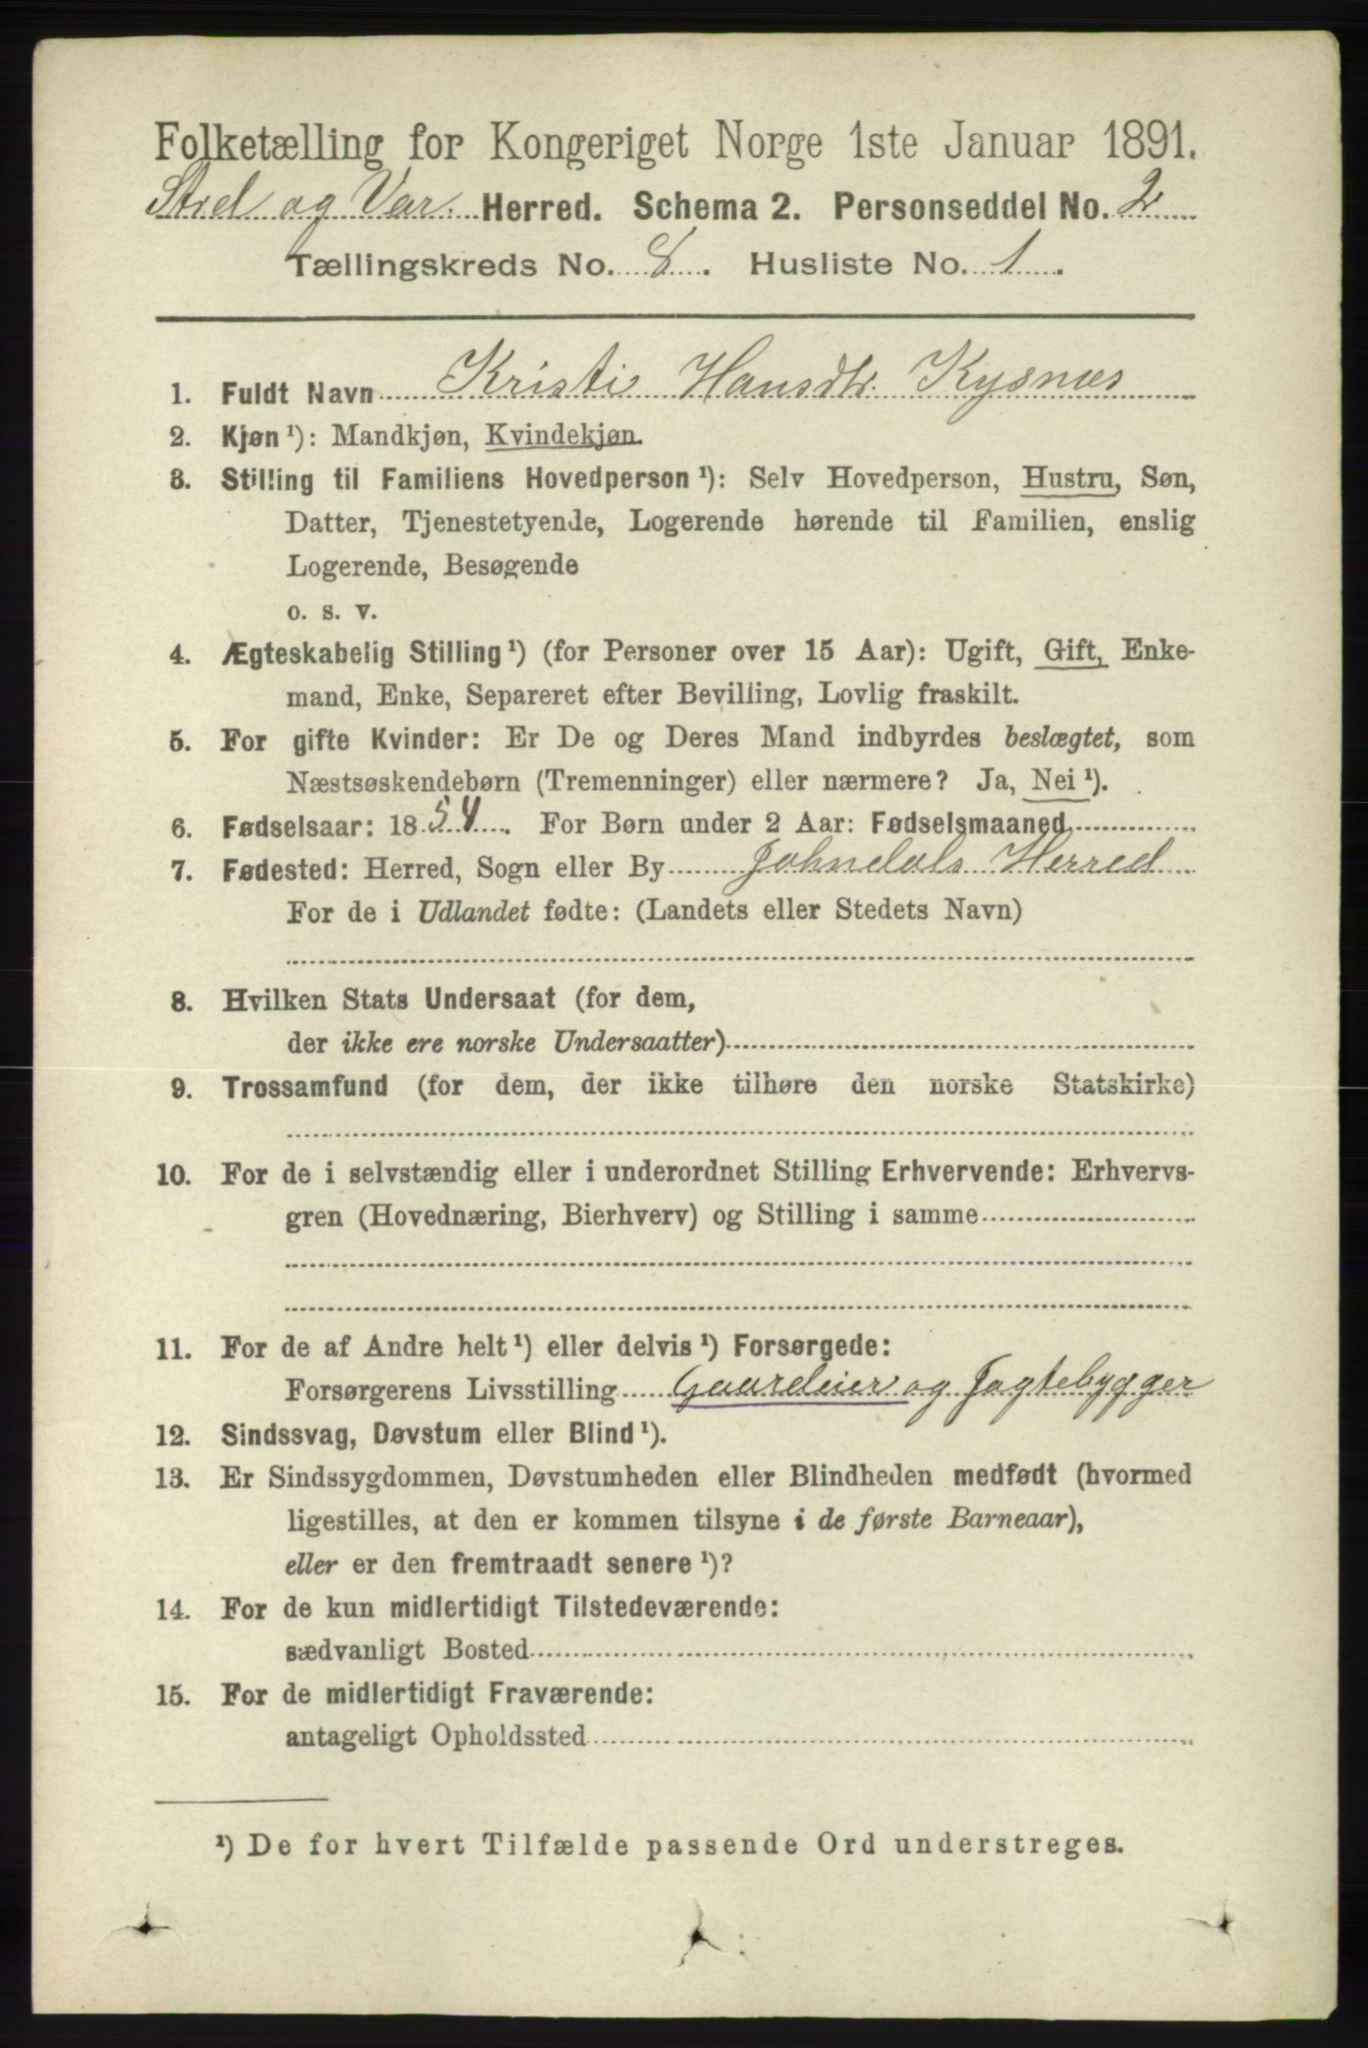 Folketælling for Kongeriget Norge 1ste Januar 1891.
Strd og Var. Herred. Schema 2. Personseddel No. 2
Tællingskreds No. 8. Husliste No. 1.
1. Fuldt Navn Kristi Hansdtr. Kysnæs
2. Kjøn ¹): Mandkjøn, Kvindekjøn.
3. Stilling til Familiens Hovedperson ¹): Selv Hovedperson, Hustru, Søn,
Datter, Tjenestetyende, Logerende hørende til Familien, enslig
Logerende, Besøgende
o. s. v.
4. Ægteskabelig Stilling ¹) (for Personer over 15 Aar): Ugift, Gift, Enke-
mand, Enke, Separeret efter Bevilling, Lovlig fraskilt.
5. For gifte Kvinder: Er De og Deres Mand indbyrdes beslægtet, som
Næstsøskendebørn (Tremenninger) eller nærmere? Ja, Nei ¹).
6. Fødselsaar: 1854. For Børn under 2 Aar: Fødselsmaaned
7. Fødested: Herred, Sogn eller By Johndals Herred
For de i Udlandet fødte: (Landets eller Stedets Navn)
8. Hvilken Stats Undersaat (for dem,
der ikke ere norske Undersaatter)
9. Trossamfund (for dem, der ikke tilhøre den norske Statskirke)
10. For de i selvstændig eller i underordnet Stilling Erhvervende: Erhvervs-
gren (Hovednæring, Bierhverv) og Stilling i samme
11. For de af Andre helt ¹) eller delvis ¹) Forsørgede:
Forsørgerens Livsstilling Gaardeier og Jagtebygger
12. Sindssvag, Døvstum eller Blind ¹).
13. Er Sindssygdommen, Døvstumheden eller Blindheden medfødt (hvormed
ligestilles, at den er kommen tilsyne i de første Barneaar),
eller er den fremtraadt senere ¹)?
14. For de kun midlertidigt Tilstedeværende:
sædvanligt Bosted
15. For de midlertidigt Fraværende:
antageligt Opholdssted
¹) De for hvert Tilfælde passende Ord understreges.